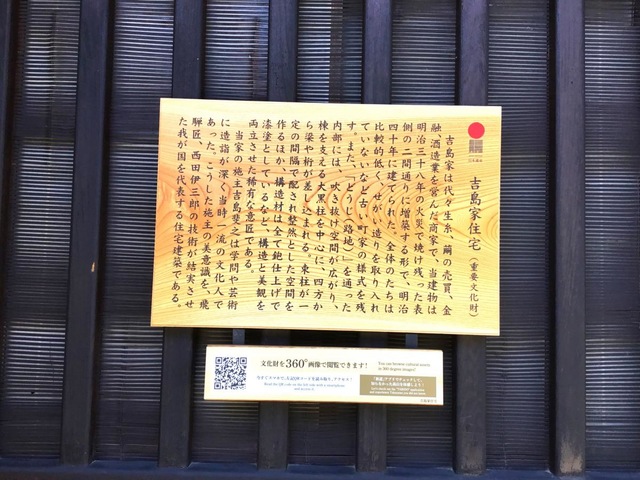 吉島家住宅(重要文化財)
吉島家は代々生糸、繭の売買、金
融、酒造業を営んだ商家で、当建物は
明治三十八年の大火で焼け残った表
側の二間通りに増築する形で、明治
四十年に建てられた。全体のたちは
比較的低く、せがい造りを取り入れ
ていないなど古い町家の様式を残
す。また、「どうじ路地」を通った
内部には、吹き抜け空間が広がり、
棟を支える大黒柱を中心に、四方か
ら梁や桁が差し込まれる。束柱が一
定の間隔で配され整然とした空間を
作るほか、構造材は全て鉋仕上げで
漆塗としているなど、構造と美観を
両立させた稀有な意匠である。
当家の施主吉島斐之は学問や芸術
に造詣が深く当時一流の文化人で
あった。こうした施主の美意識を、飛
騨匠、西田伊三郎の技術が結実させ
た我が国を代表する住宅建築である。
文化財を360°画像で閲覧できます!
You can browse cultural assets
in 360 degree images!